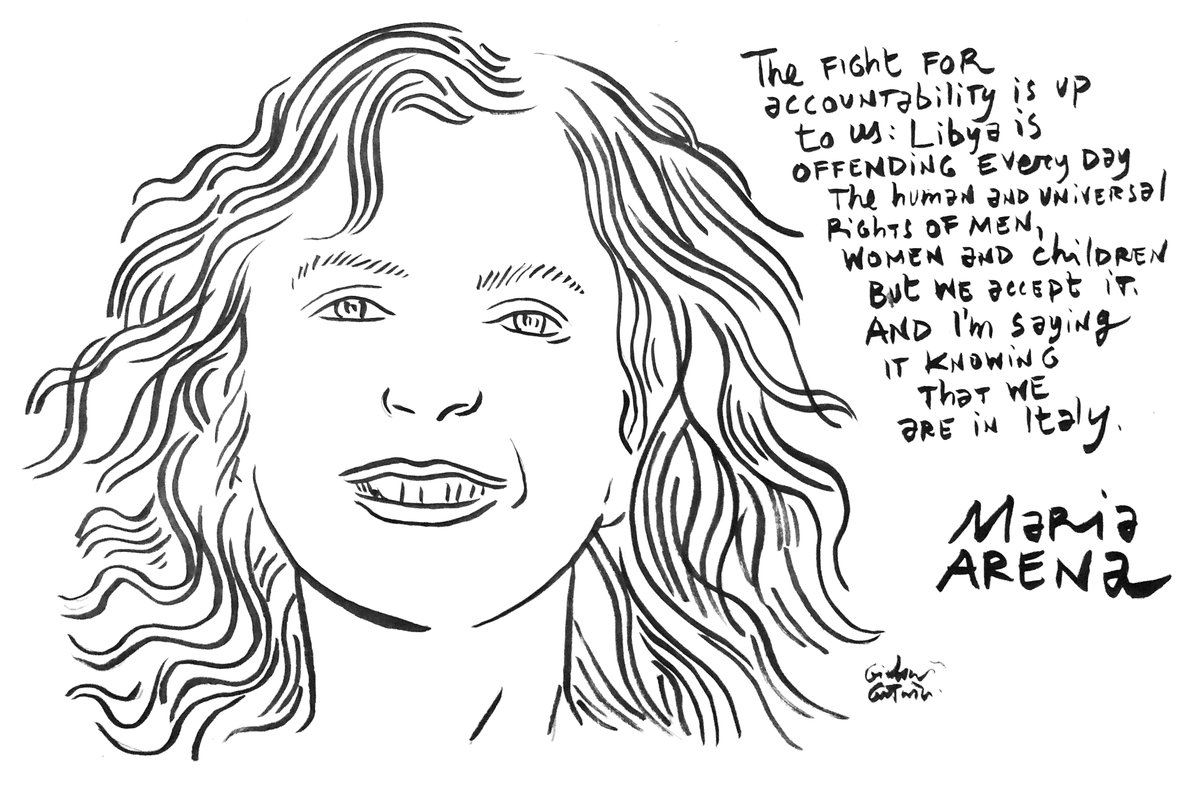 The FIGHT FOR
accOUNTability is up
to us: Libya is
OFFENDING EVERY DAY
The human AND UNIVERSAL
RIGHTS OF MEN,
WOMEN AND CHILDREN
BUT WE accept it.
AND I'm saying
IT KNOWING
THAT WE
ARE IN Italy.
MARIA
ARENA